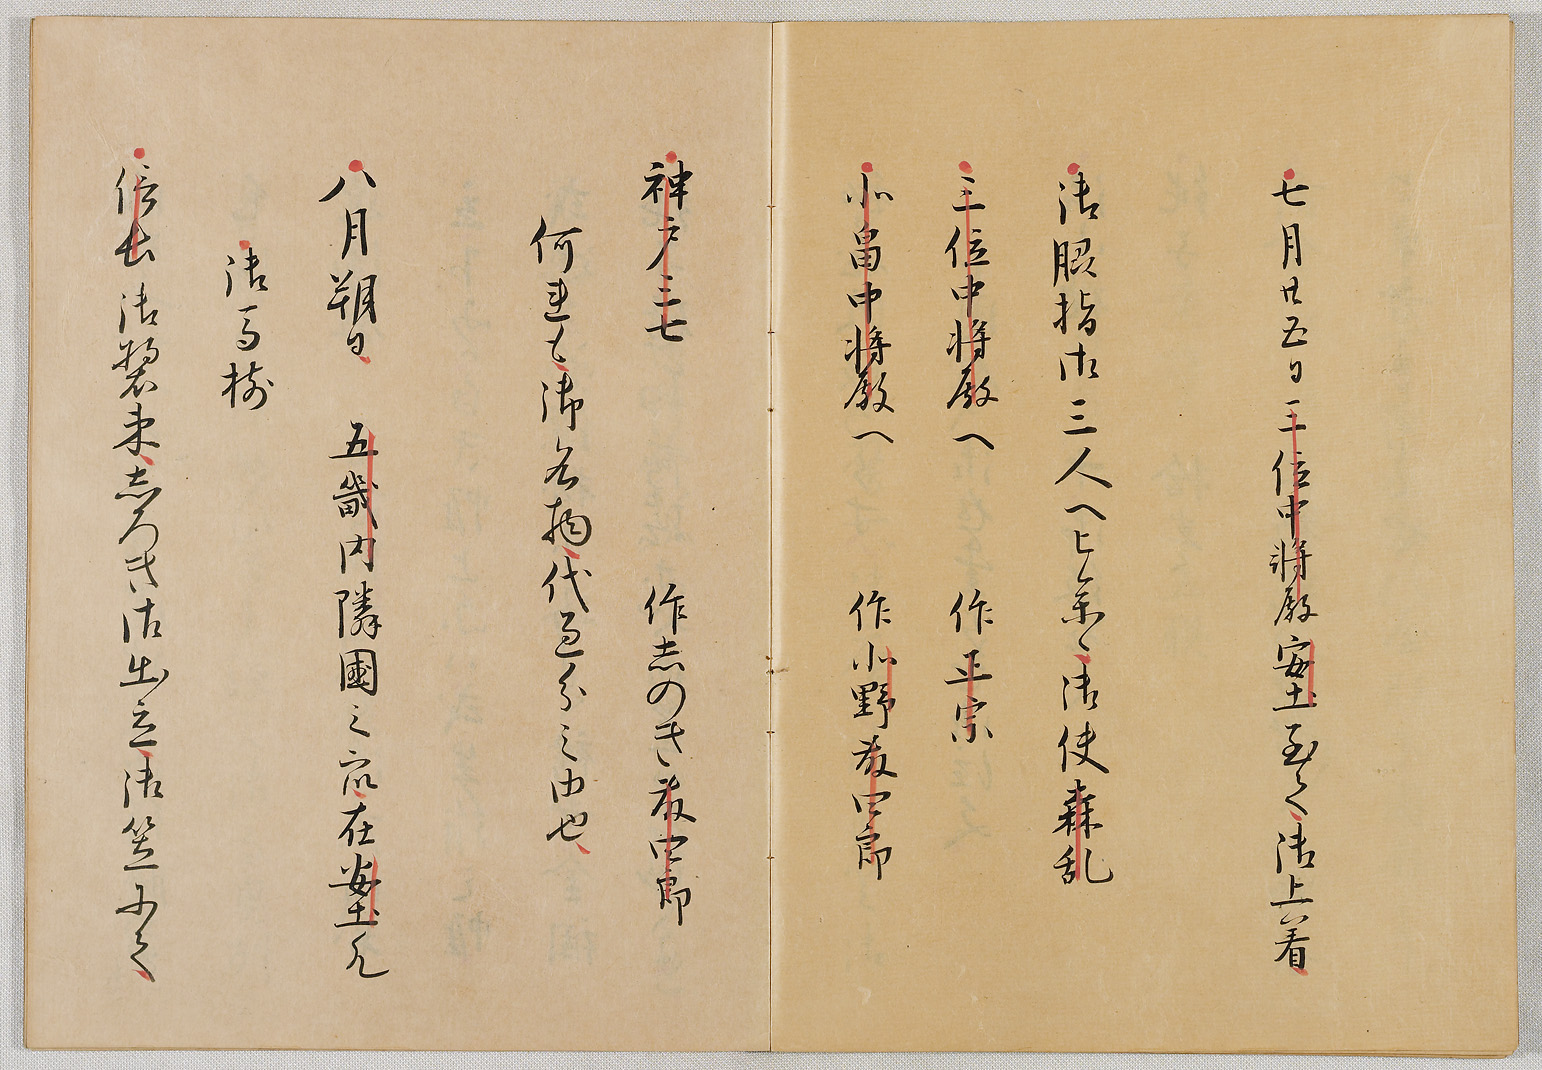 七月廿五日三位中将殿安土至て御上着
御脇指御三人へ被参候御使森乱
三位中将殿へ 作正宗
北畠中将殿へ 作北野藤四郎
神戸三七 作志のき藤四郎
何連も御名物代過分之由也
八月朔日 五畿内隣國之衆在安土
御馬揃
信長御装束志ろき御出立御笠にて